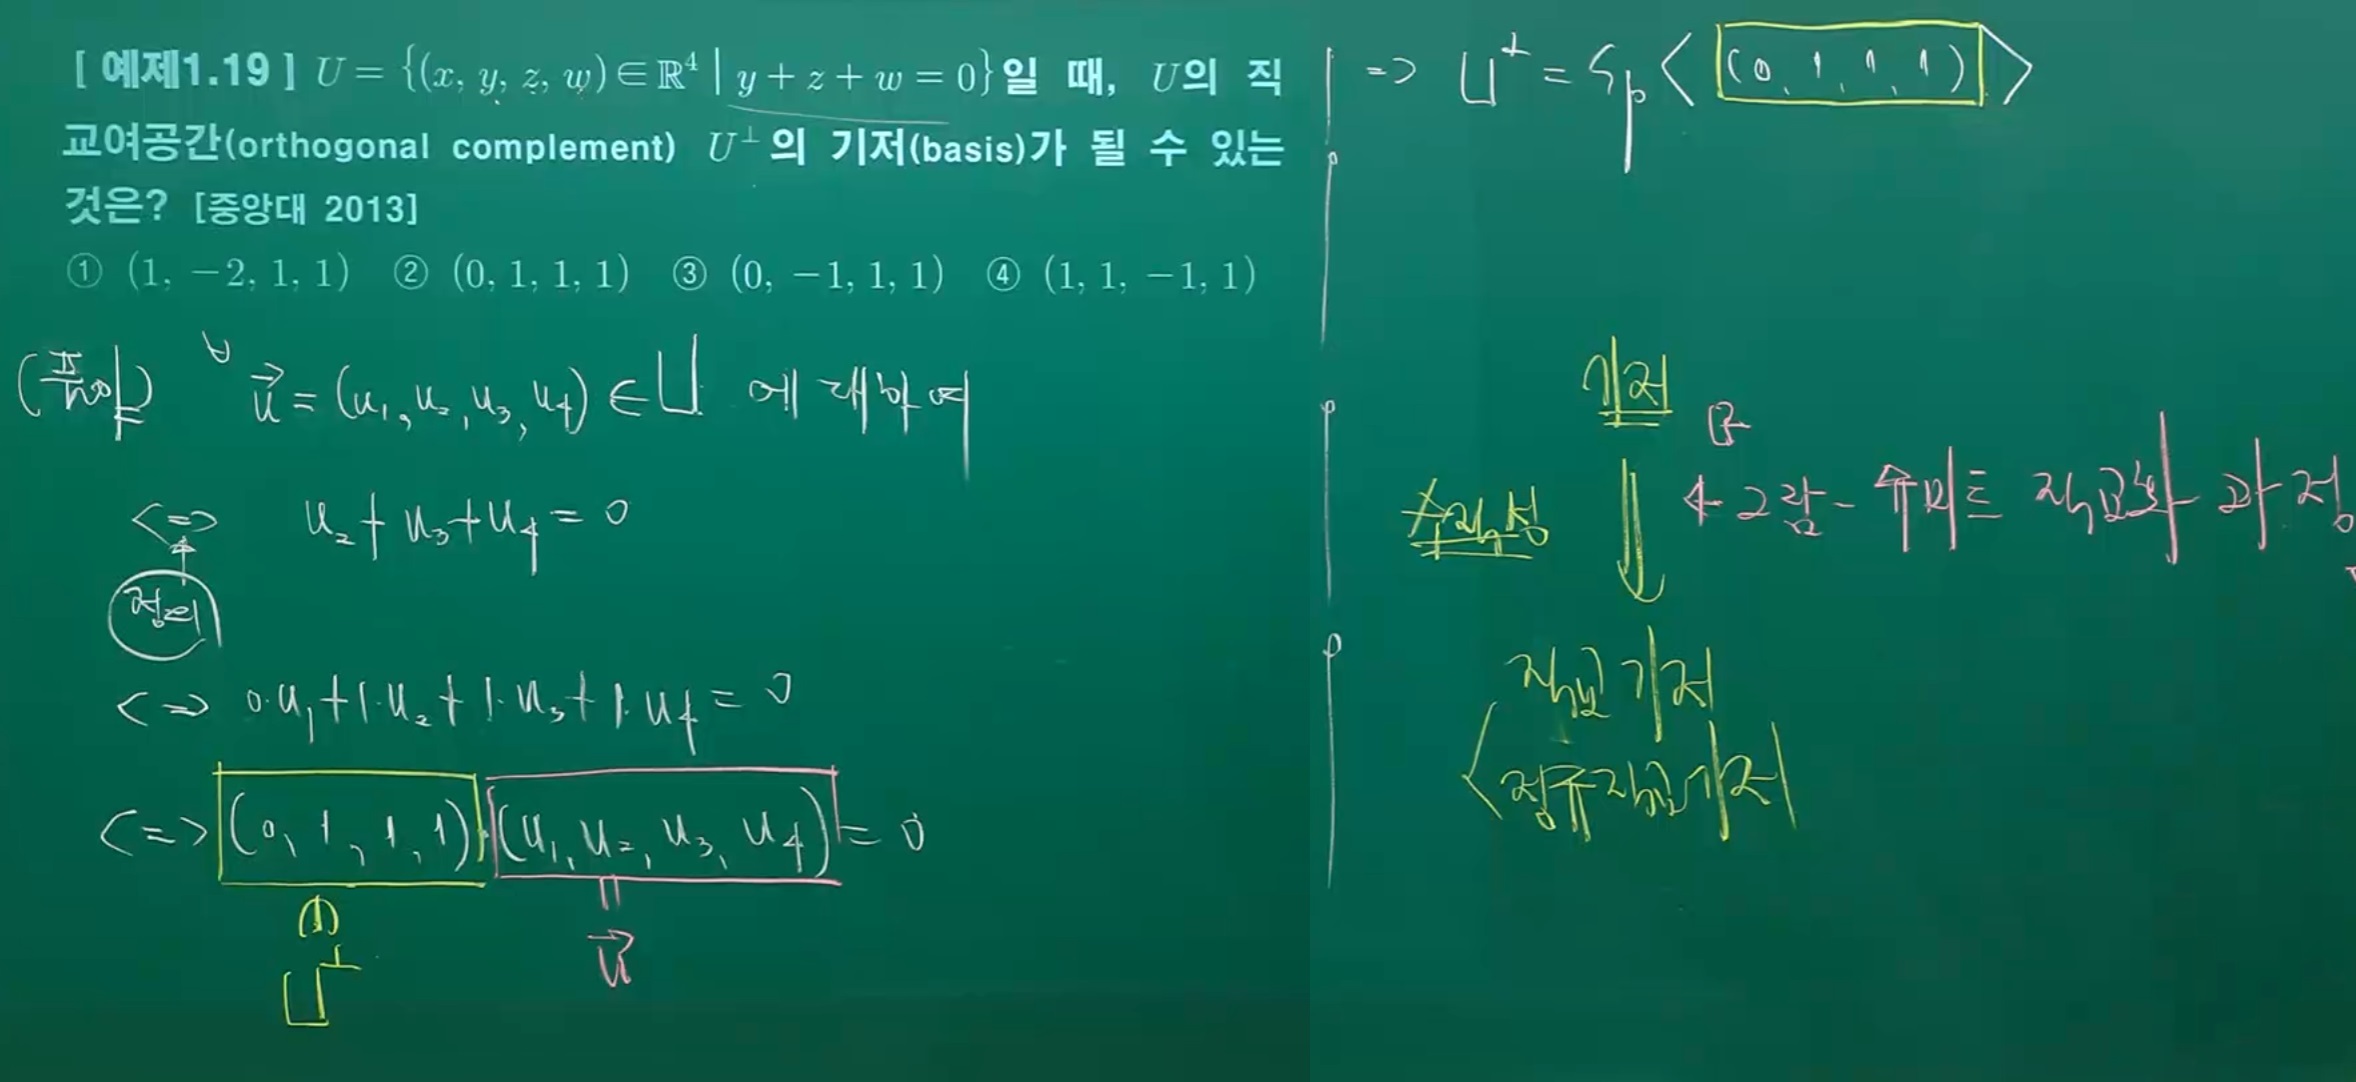 [ 예제1.19 ] U = {(x, y, z, w)∈ℝ⁴ | y + z + w = 0}일 때, U의 직
교여공간(orthogonal complement) U⊥의 기저(basis)가 될 수 있는
것은? [중앙대 2013]
① (1, −2, 1, 1) ② (0, 1, 1, 1) ③ (0, −1, 1, 1) ④ (1, 1, −1, 1)
(풀이) ∀ u⃗ = (u₁, u₂, u₃, u₄) ∈ U 에 대하여
<=> u₂ + u₃ + u₄ = 0
정리
<=> 0·u₁ + 1·u₂ + 1·u₃ + 1·u₄ = 0
<=> (0, 1, 1, 1)·(u₁, u₂, u₃, u₄) = 0
∩ ||
U⊥ u⃗
=> U⊥ = Sp<(0, 1, 1, 1)>
기저
← 그람-슈미트 직교화 과정
직교기저
정규직교기저